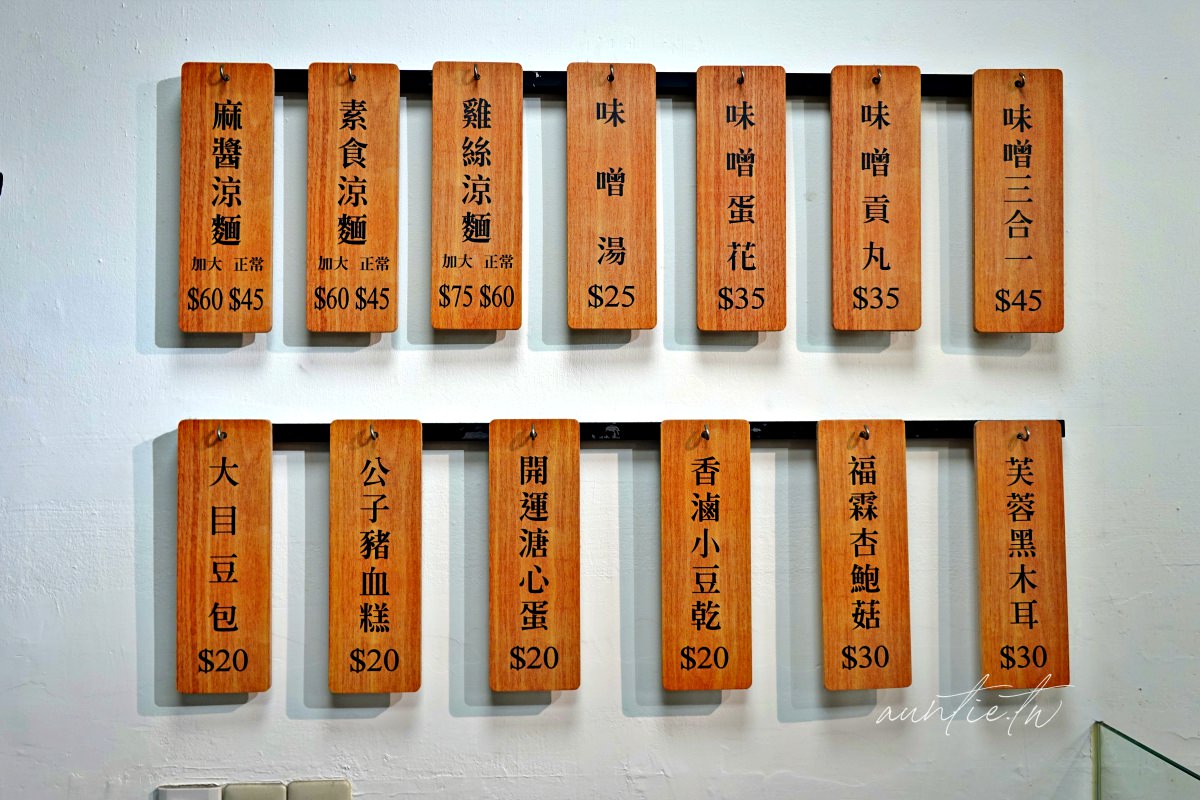 麻醬涼麵
加大 正常
$60 $45
素食涼麵
加大 正常
$60 $45
雞絲涼麵
加大 正常
$75 $60
味噌湯
$25
味噌蛋花
$35
味噌貢丸
$35
味噌三合一
$45
大目豆包
$20
公子豬血糕
$20
開運溏心蛋
$20
香滷小豆乾
$20
福霖杏鮑菇
$30
芙蓉黑木耳
$30
auntie.tw